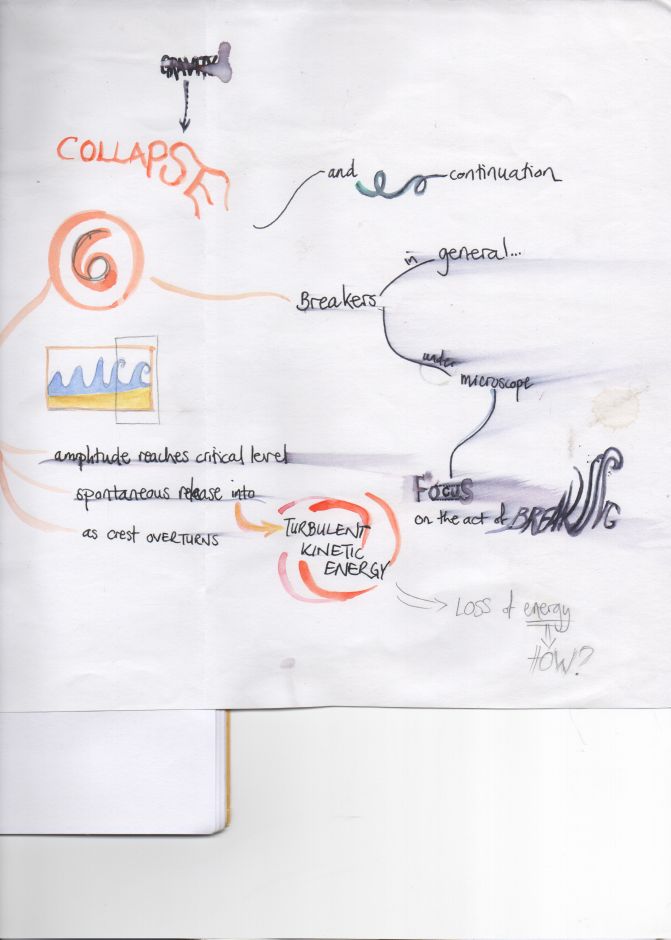 GRAVITY
COLLAPSE
and continuation
6
in general...
Breakers
under
microscope
amplitude reaches critical level
spontaneous release into
as crest OVERTURNS
TURBULENT
KINETIC
ENERGY
FOCUS
on the act of BREAKING
LOSS of energy
HOW?